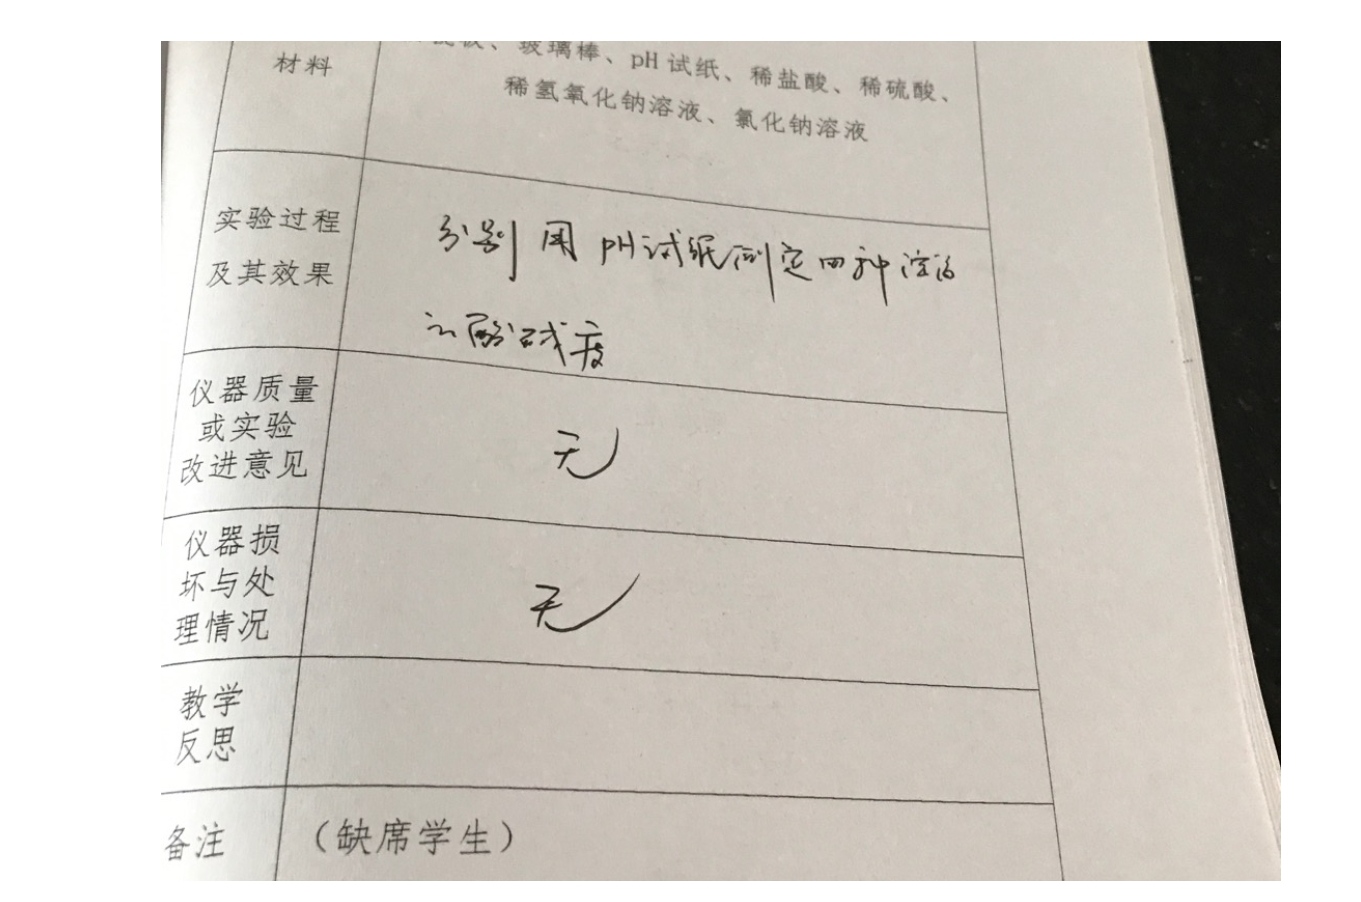 材料
玻璃棒、pH试纸、稀盐酸、稀硫酸、
稀氢氧化钠溶液、氯化钠溶液
实验过程
及其效果
分别用pH试纸测定四种溶液
的酸碱度
仪器质量
或实验
改进意见
无
仪器损
坏与处
理情况
无
教学
反思
备注
（缺席学生）